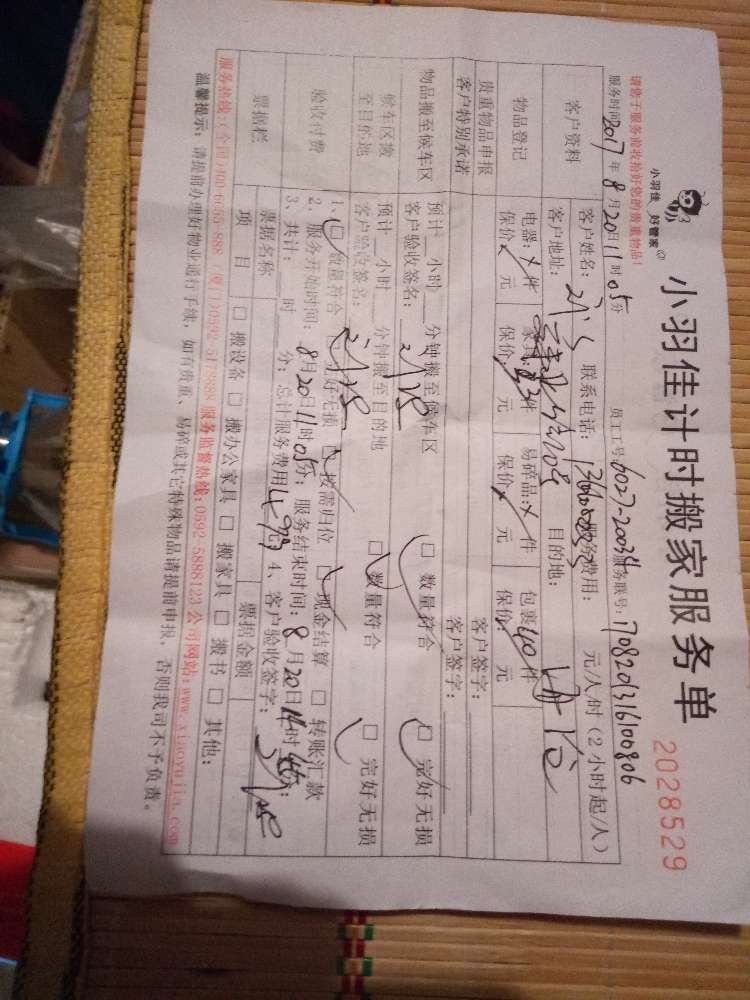 小羽佳 好管家
小羽佳计时搬家服务单
2028529
请您于服务前收拾好您的贵重物品!
服务时间: 2017年8月20日11时05分 员工工号: 6027-2003 服务联号: 1708201316100806
客户资料 客户姓名: 联系电话: 服务费用: 元/人/时(2小时起/人)
客户地址: 目的地:
物品登记 电器: 件 家具: 件 易碎品: 件 包裹40件
保价 元 保价 元 保价 元 保价: 元
贵重物品申报 客户签字:
客户特别承诺 客户签字:
物品搬至候车区 预计 小时 分钟搬至候车区 □ 数量符合 □ 完好无损
客户验收签名:
候车区搬至目的地 预计 小时 分钟搬至目的地 □ 数量符合 □ 完好无损
客户验收签名:
验收付费 1、□ 数量符合 □ 完好无损 □ 按需归位 □ 现金结算 □ 转账汇款
2、服务开始时间: 8月20日11时05分; 服务结束时间: 8月20日14时 分;
3、共计: 时 分; 总计服务费用 元 4、客户验收签字:
票据栏 票据名称 票据金额
项目 □ 搬设备 □ 搬办公家具 □ 搬家具 □ 搬书 □ 其他:
服务热线:(全国)400-6155-888 (厦门)0592-5178888 服务监督热线:0592-5888123 公司网站:www.xiaoyujia.com
温馨提示: 请提前办理好物业通行手续, 如有贵重、易碎或其它特殊物品请提前申报, 否则我司不予负责。